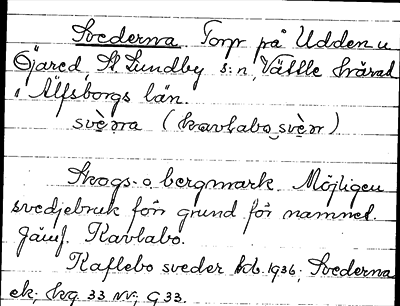 Svederna Torp på Udden u
Öjared, St. Lundby s:n, Vättle härad
i Älfsborgs län.
svèṇa (kavlabo svèṇ)
Skogs- o bergmark. Möjligen
svedjebruk förr grund för namnet.
Jämf. Kavlabo.
Kaflebo sveder Jdb. 1936; Svederna
ek; hg 33 NV; G 33.